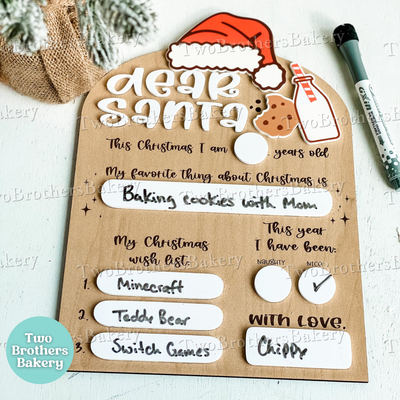 dear
santa
This Christmas I am years old
My favorite thing about Christmas is
Baking cookies with Mom
My Christmas
wish list:
This year
I have been:
NAUGHTY NICE
✓
1. Minecraft
2. Teddy Bear
3. Switch Games
With Love,
Chippy
Two
Brothers
Bakery
TwoBrothersBakery